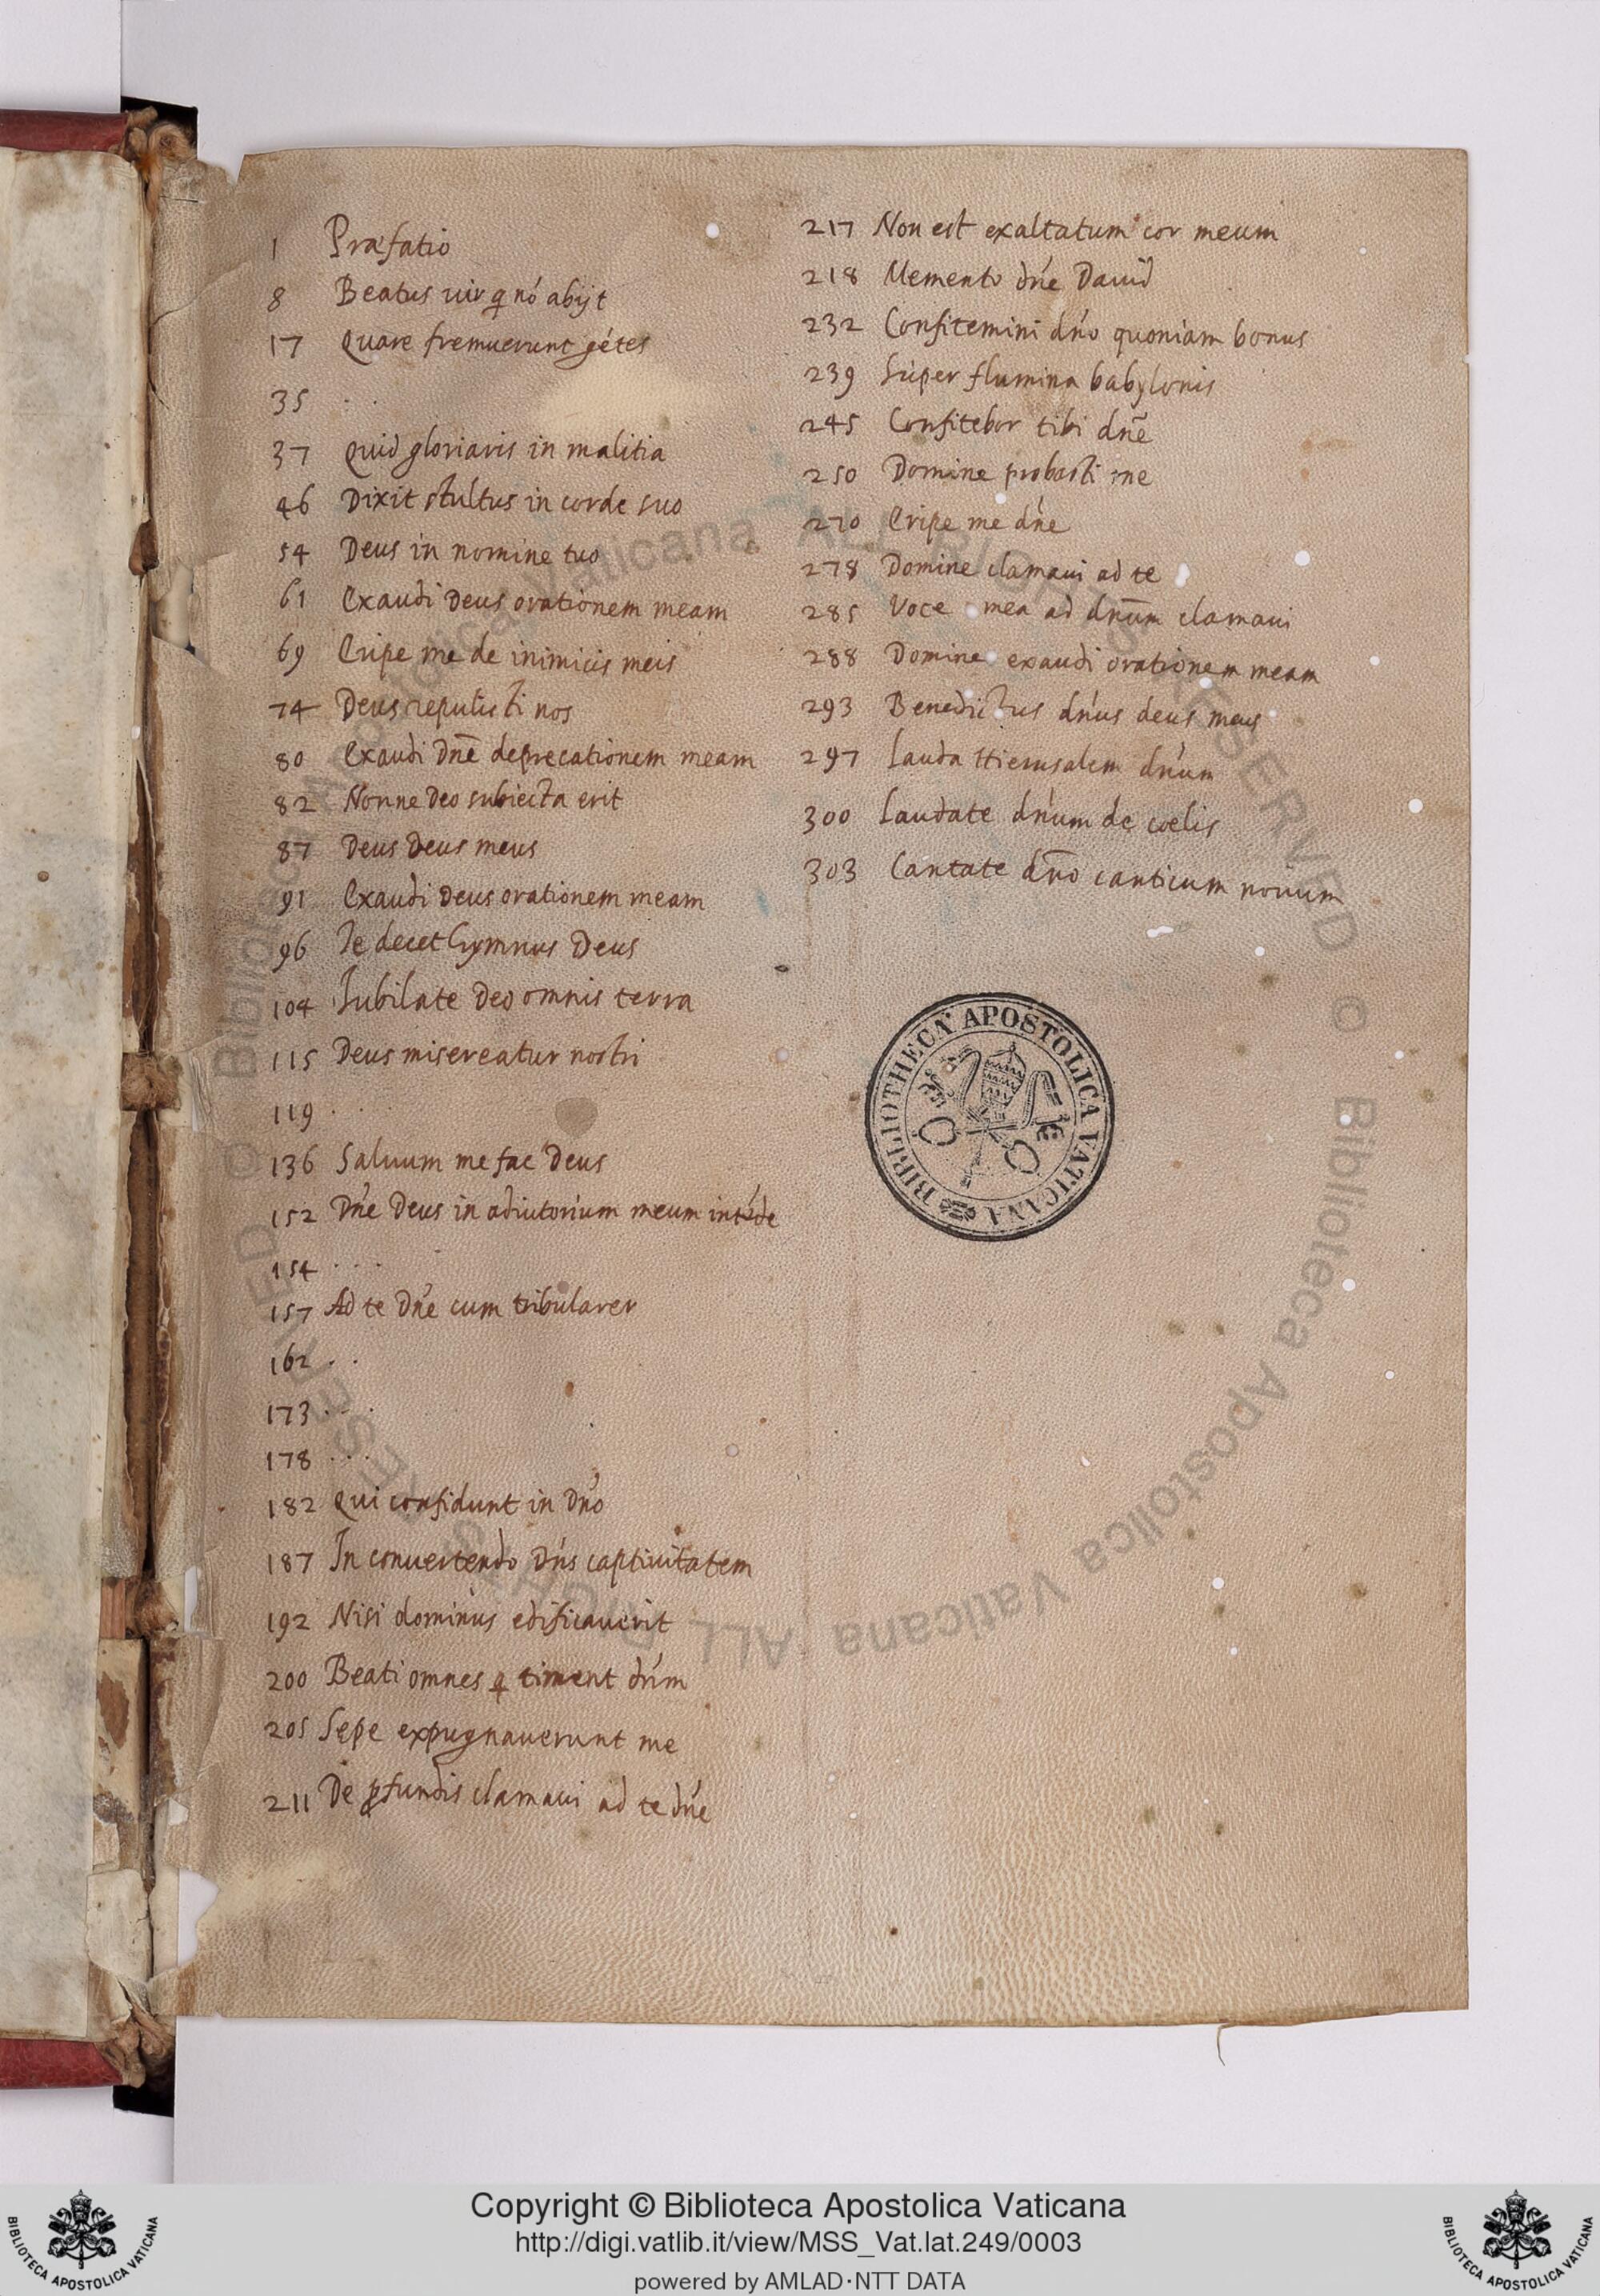 1 Præfatio
8 Beatus uir q nó abijt
17 Quare fremuerunt gétes
35 . .
37 Quid gloriaris in malitia
46 Dixit stultus in corde suo
54 Deus in nomine tuo
61 Exaudi Deus orationem meam
69 Eripe me de inimicis meis
74 Deus repulisti nos
80 Exaudi Dnē deprecationem meam
82 Nonne Deo subiecta erit
87 Deus Deus meus
91 Exaudi Deus orationem meam
96 Te decet hymnus Deus
104 Iubilate Deo omnis terra
115 Deus misereatur nostri
119 . . .
136 Saluum me fac Deus
152 Dńe Deus in adiutorium meum inté́de
154 . . .
157 Ad te Dńe cum tribularer
162 . .
173 . . .
178 . . .
182 Qui confidunt in Dńo
187 In conuertendo Dńs captiuitatem
192 Nisi dominus edificauerit
200 Beati omnes q timent dńm
205 Sępe expugnauerunt me
211 De ꝓfundis clamaui ad te dńe
217 Non est exaltatum cor meum
218 Memento dńe Dauid
232 Confitemini dńo quoniam bonus
239 Super flumina babylonis
245 Confitebor tibi dnē
250 Domine probasti me
270 Eripe me dńe
278 Domine clamaui ad te
285 Voce mea ad dnūm clamaui
288 Domine exaudi orationem meam
293 Benedictus dńus deus meus
297 Lauda Hierusalem dńum
300 Laudate dńum de cœlis
303 Cantate dn̄o canticum nouum
BIBLIOTHECA APOSTOLICA VATICANA
© Biblioteca Apostolica Vaticana ALL RIGHTS RESERVED © Biblioteca Apostolica Vaticana ALL RIGHTS RESERVED
Copyright © Biblioteca Apostolica Vaticana
http://digi.vatlib.it/view/MSS_Vat.lat.249/0003
powered by AMLAD·NTT DATA
BIBLIOTECA APOSTOLICA VATICANA
BIBLIOTECA APOSTOLICA VATICANA